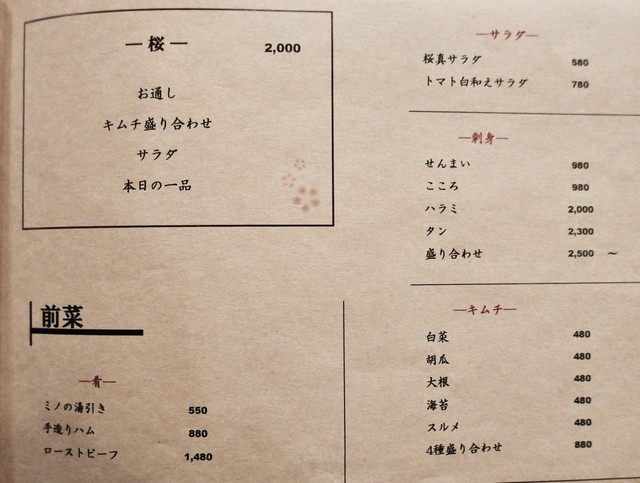 ―桜― 2,000
お通し
キムチ盛り合わせ
サラダ
本日の一品
前菜
―肴―
ミノの湯引き 550
手造りハム 880
ローストビーフ 1,480
―サラダ―
桜真サラダ 580
トマト白和えサラダ 780
―刺身―
せんまい 980
こころ 980
ハラミ 2,000
タン 2,300
盛り合わせ 2,500 ～
―キムチ―
白菜 480
胡瓜 480
大根 480
海苔 480
スルメ 480
4種盛り合わせ 880